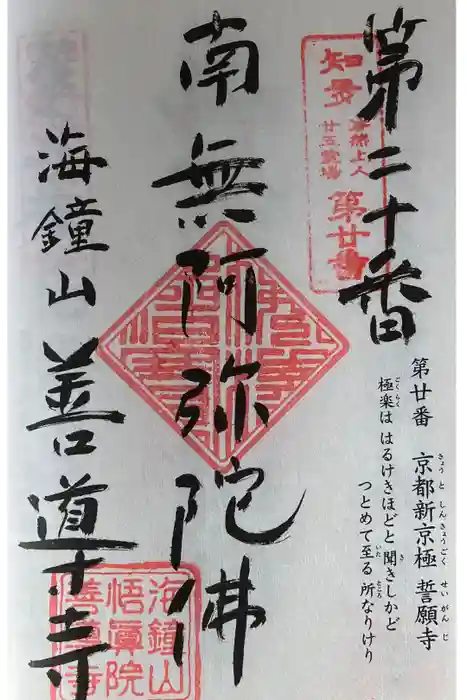 第二十番
知多
法然上人
廿五霊場
第廿番
第廿番 京都新京極 誓願寺
極楽は はるけきほどと聞きしかど
つとめて至る 所なりけり
南無阿弥陀佛
海鐘山
善導寺
海鐘山
悟真院
善導寺